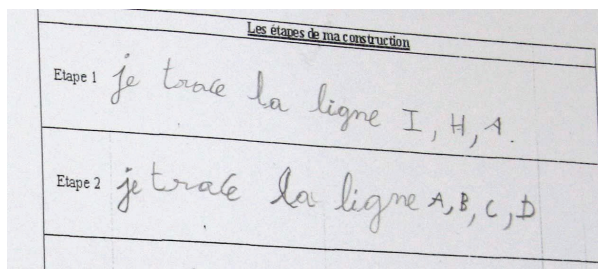 Les étapes de ma construction
Etape 1 je trace la ligne I, H, A.
Etape 2 je trace la ligne A, B, C, D